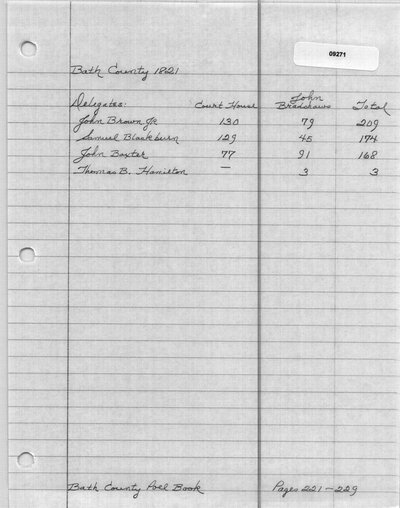 09271
Bath County 1821
Delegates: Court House John Bradshaws Total
John Brown Jr. 130 79 209
Samuel Blackburn 129 45 174
John Baxter 77 91 168
Thomas B. Hamilton — 3 3
Bath County Poll Book Pages 221-229